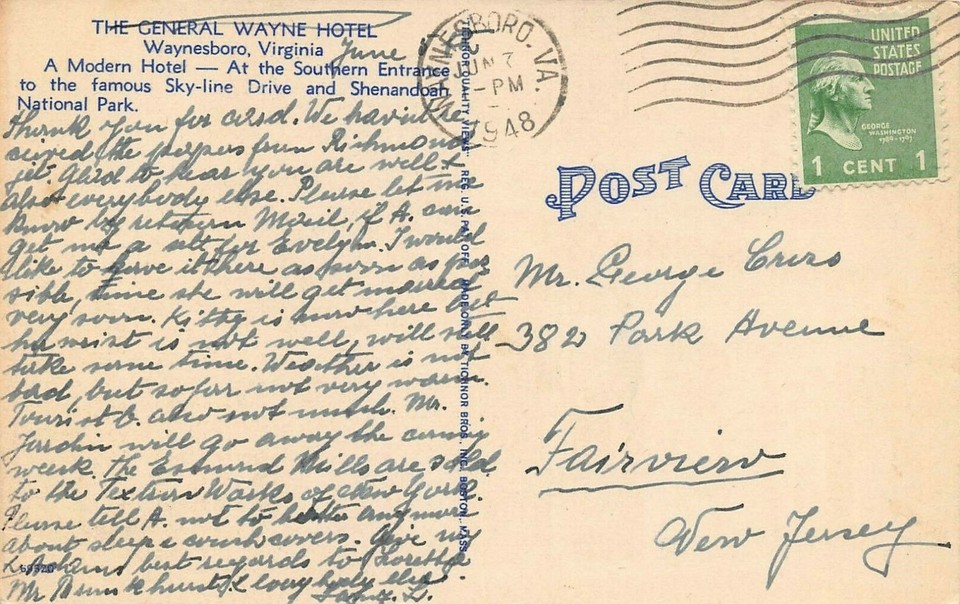 THE GENERAL WAYNE HOTEL
Waynesboro, Virginia
A Modern Hotel — At the Southern Entrance
to the famous Sky-line Drive and Shenandoah
National Park.
June
Thank you for card. We havin're
ceived the papers from Richmond
yet. Glad to hear you are well &
also everybody else. Please let me
know by return Mail, if A. can
get me a for Evelyn. I would
like to have it there as soon as pos
sible, since she will get married
very soon. Kitty is now here but
her wrist is not well, will still
take some time. Weather is not
bad, but sofar not very warm.
Tourist b. also not much. Mr.
Jardin will go away the coming
week. The Esmond Mills are sold
to the Textron Works of New York.
Please tell A. not to bother any more
about sleep & couch covers. Give my
best regards to Loretta
Mr & everybody else
L.
68820
TICHNOR QUALITY VIEWS" REG. U. S. PAT. OFF. MADE ONLY BY TICHNOR BROS. INC., BOSTON, MASS.
WAYNESBORO. VA.
JUN 7
-PM
1948
UNITED
STATES
POSTAGE
GEORGE
WASHINGTON
1789-1797
1 CENT 1
POST CARD
Mr. George
382 Park Avenue
Fairview
New Jersey